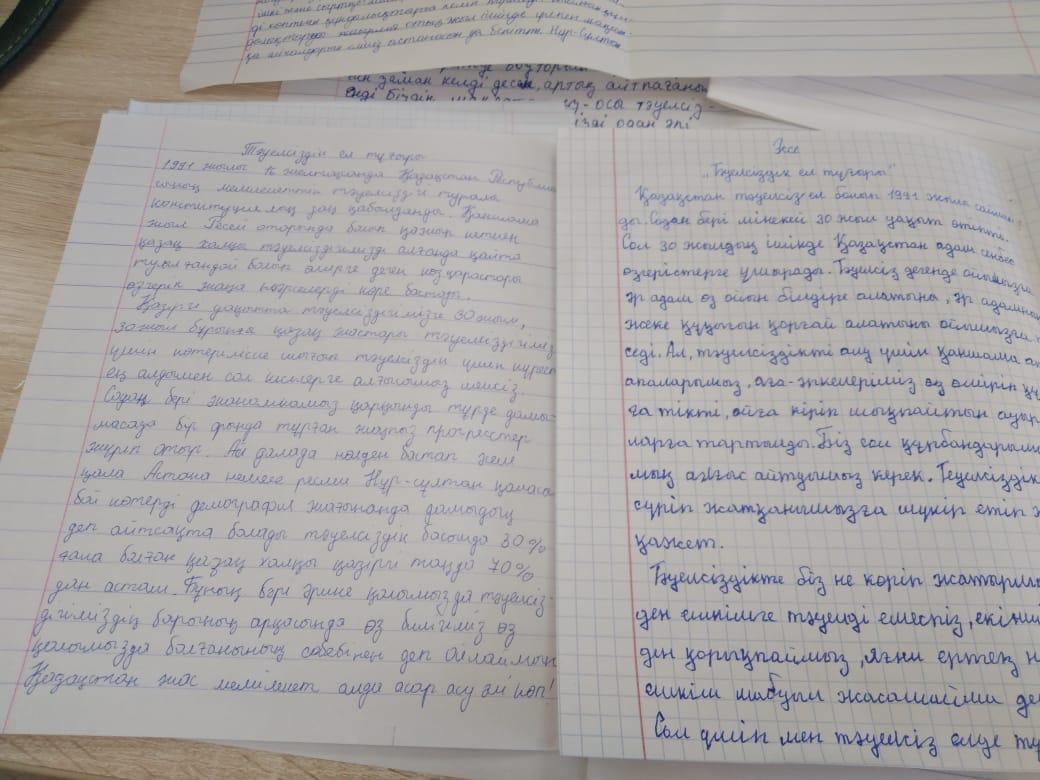 ді көптеген қиындықтарға келіп тірелді.
да айналдырып елміз астанасын да бекіттік. Нұр-Сұлтан
заман келді десек, артық айтпағаным
енді біздің
осы тәуелсіз-
ізді одан әрі
Тәуелсіздік ел тұғыры
1991 жылы 16 желтоқсанда Қазақстан Республика
сының мемлекеттік тәуелсіздігі туралы
конституциялық заң қабылданды. Қаншама
жыл Ресей отарында болып қажып кеткен
қазақ халқы тәуелсіздігімізді алғанда қайта
туылғандай болып өмірге деген көзқарастары
өзгеріп жаңа нәрселерді көре бастады.
Қазіргі уақытта тәуелсіздігімізге 30 жыл,
30 жыл бұрынғы қазақ жастары тәуелсіздігіміз
үшін көтеріліске шыққан тәуелсіздік үшін күрест
ең алдымен сол кісілерге алғысымыз шексіз.
Содан бері экономикамыз қарқынды түрде дамы-
масада бір орында тұрған жоқпыз прогресстер
жүріп отыр. Ай далада нөлден бастап жеті
қала Астана немесе ресми Нұр-сұлтан қаласы
бой көтерді демография жағынанда дамыдық
деп айтсақта болады тәуелсіздік басында 30%
ғана болған қазақ халқы қазіргі таңда 70%
дан астам. Бұның бәрі әрине қолымызда тәуелсіз-
дігіміздің барының арқасында өз билігіміз өз
қолымызда болғанының себебінен деп ойлаймын
Қазақстан жас мемлекет алда асар асу әлі көп!
Эссе
"Тәуелсіздік ел тұғыры"
Қазақстан тәуелсіз ел болып 1991 жылы сайлан
ды. Содан бері мінекей 30 жыл уақыт өтіпті.
Сол 30 жылдың ішінде Қазақстан адам сенбес
өзгерістерге ұшырады. Тәуелсіз дегенде ойымызға
әр адам өз ойын білдіре алатыны, әр адамның
жеке құқығын қорғай алатыны ойымызға
седі. Ал, тәуелсіздікті алу үшін қаншама
апаларымыз, аға-әкелеріміз өз өмірін құ
ға тікті, ойға кіріп шықпайтын ауыр
ларға тартылды. Біз сол құрбандарымы
мың алғыс айтуымыз керек. Тәуелсіздік
сүріп жатқанымызға шүкір етіп
қажет.
Тәуелсіздікте біз не көріп жатырмы
ден ешкімге тәуелді емеспіз, екінші
дін қорықпаймыз, яғни ертең
ешкім шабуыл жасамайды де
Сол үшін мен тәуелсіз елде ту